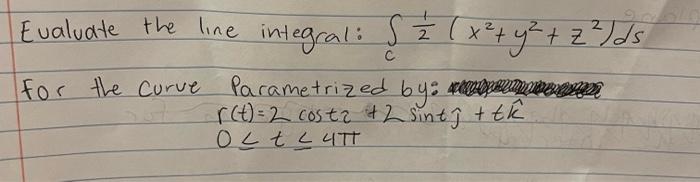 Evaluate the line integral: ∫_C 1/2 (x²+y²+z²)ds
For the curve Parametrized by:
r(t)=2 costî + 2 sintĵ + tk̂
0 ≤ t ≤ 4π